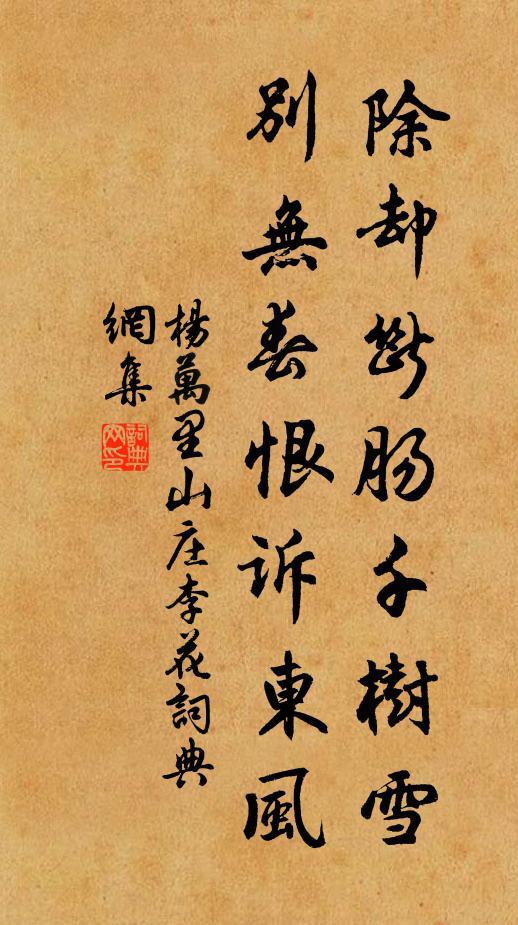 除却斷腸千樹雪
別無春恨訴東風
楊萬里山庄李花詞典
網集
詞典
网印